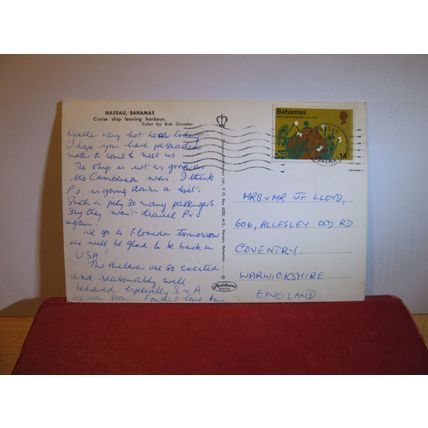 NASSAU, BAHAMAS
Cruise ship leaving harbour.
Color by Bob Glander
Bahamas
Weather very hot here today
I hope you have persuaded
mother to come to meet us.
The ship is not as good as
the Camberra was. I think
P&O is going down a bit!
Such a pity so many passengers
say they won't travel P&O
again.
We go to Florida tomorrow
we will be glad to be back in
USA!
The children are so excited
and reasonably well
behaved especially S & A
See you soon Fondest love
MRS & MR JF LLOYD,
606, ALLESLEY OLD RD
COVENTRY.
WARWICKSHIRE
ENGLAND